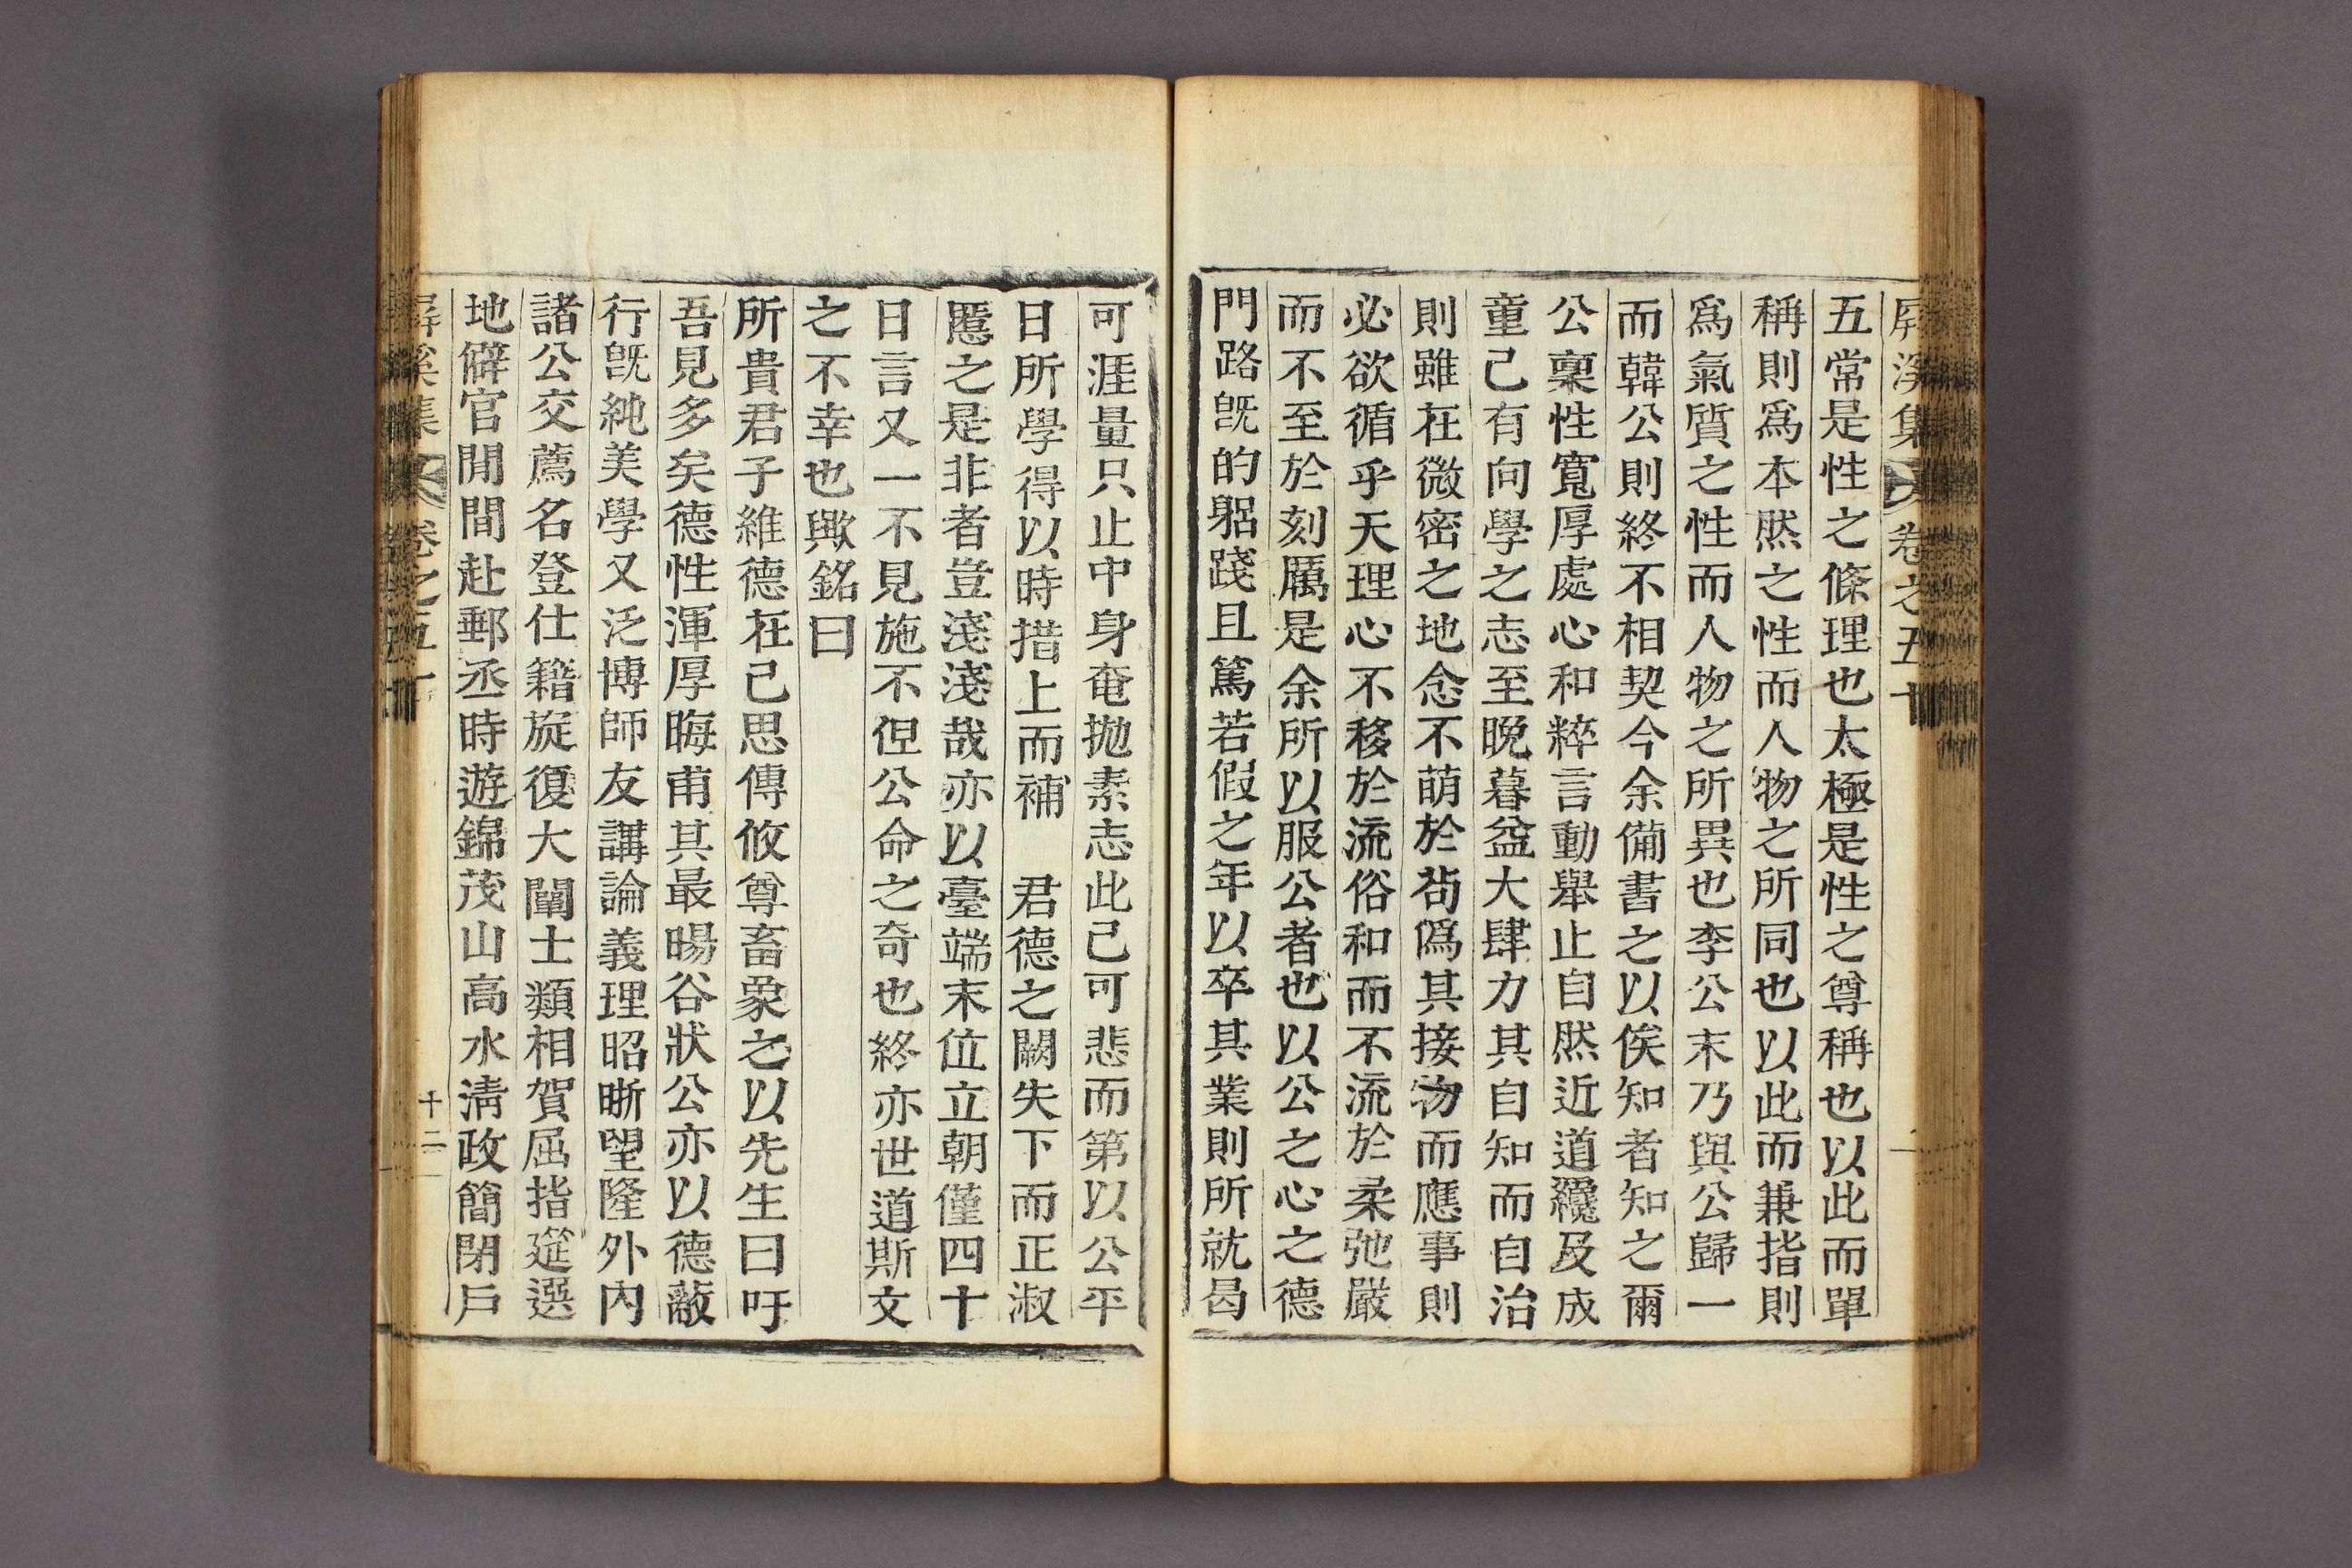 屛溪集 卷之五十
五常是性之條理也太極是性之尊稱也以此而單
稱則爲本然之性而人物之所同也以此而兼指則
爲氣質之性而人物之所異也李公末乃與公歸一
而韓公則終不相契今余備書之以俟知者知之爾
公稟性寬厚處心和粹言動舉止自然近道纔及成
童己有向學之志至晩暮益大肆力其自知而自治
則雖在微密之地念不萌於苟僞其接物而應事則
必欲循乎天理心不移於流俗和而不流於柔弛嚴
而不至於刻厲是余所以服公者也以公之心之德
門路旣的躳踐且篤若假之年以卒其業則所就曷
可涯量只止中身奄拋素志此己可悲而第以公平
日所學得以時措上而補　君德之闕失下而正淑
慝之是非者豈淺淺哉亦以臺端末位立朝僅四十
日言又一不見施不但公命之奇也終亦世道斯文
之不幸也歟銘曰
所貴君子維德在己思傳攸尊畜象之以先生曰吁
吾見多矣德性渾厚晦甫其最暘谷狀公亦以德蔽
行旣純美學又泛博師友講論義理昭晣望隆外內
諸公交薦名登仕籍旋復大闡士類相賀屈指筵選
地僻官閒間赴郵丞時遊錦茂山高水淸政簡閉戶
屛溪集 卷之五十 十二